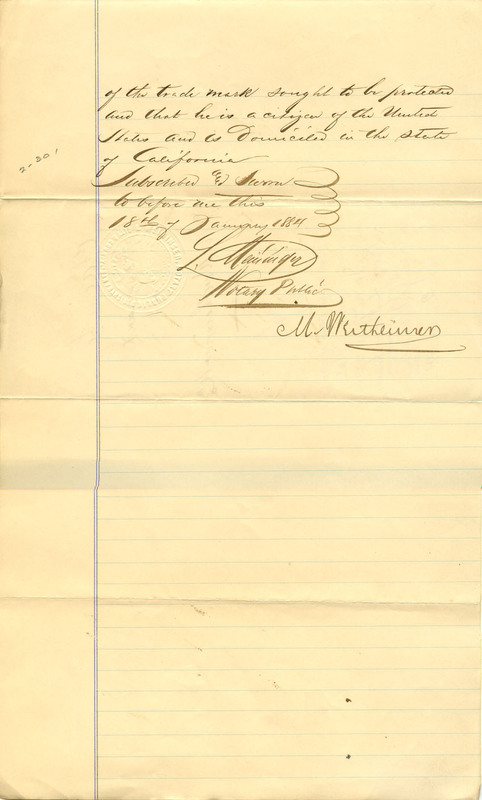 of the trade mark sought to be protected
and that he is a citizen of the United
States and is Domiciled in the State
of California
2-30,
Subscribed & Sworn
to before me this
18th of January 1884
L.
Notary Public
M. Wertheimer